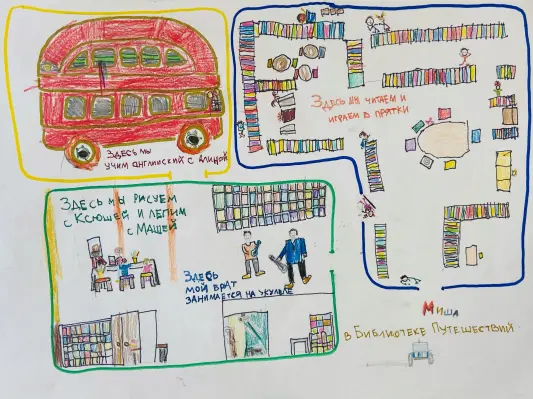 Здесь мы
учим английский с Алиной
Здесь мы читаем и
играем в прятки
Здесь мы рисуем
с Ксюшей и лепим
с Машей
Здесь
мой брат
занимается на укулеле
Миша
в Библиотеке Путешествий